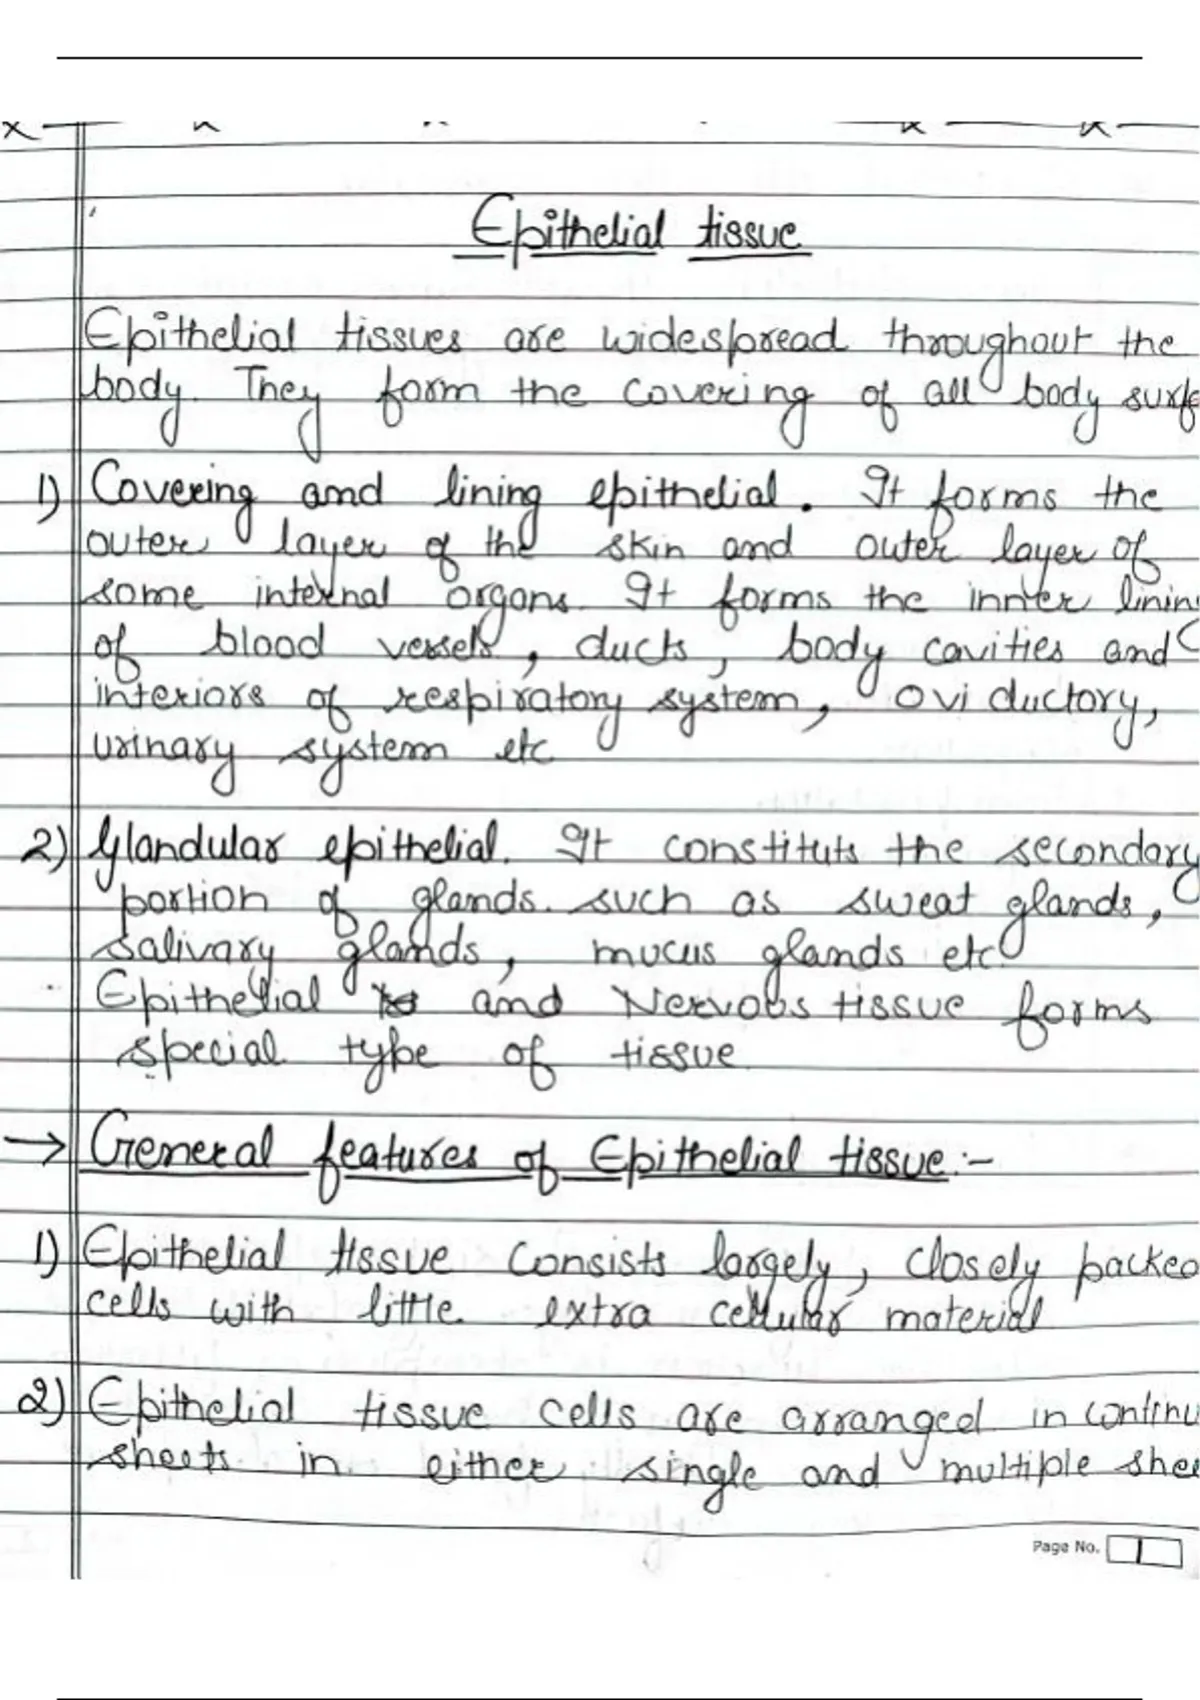 Epithelial tissue
Epithelial tissues are widespread throughout the
body. They form the covering of all body surfa
1) Covering and lining epithelial. It forms the
outer layer of the skin and outer layer of
some internal organs. It forms the inner lining
of blood vessels, ducts, body cavities and
interiors of respiratory system, oviductory,
urinary system etc
2) Glandular epithelial. It constituts the secondary
portion of glands. such as sweat glands,
salivary glands, mucus glands etc
Epithelial and Nervous tissue forms
special type of tissue
→ General features of Epithelial tissue:-
1) Epithelial tissue consists largely, closely packed
cells with little extra cellular material
2) Epithelial tissue cells are arranged in continu
sheets in either single and multiple shee
Page No. 1